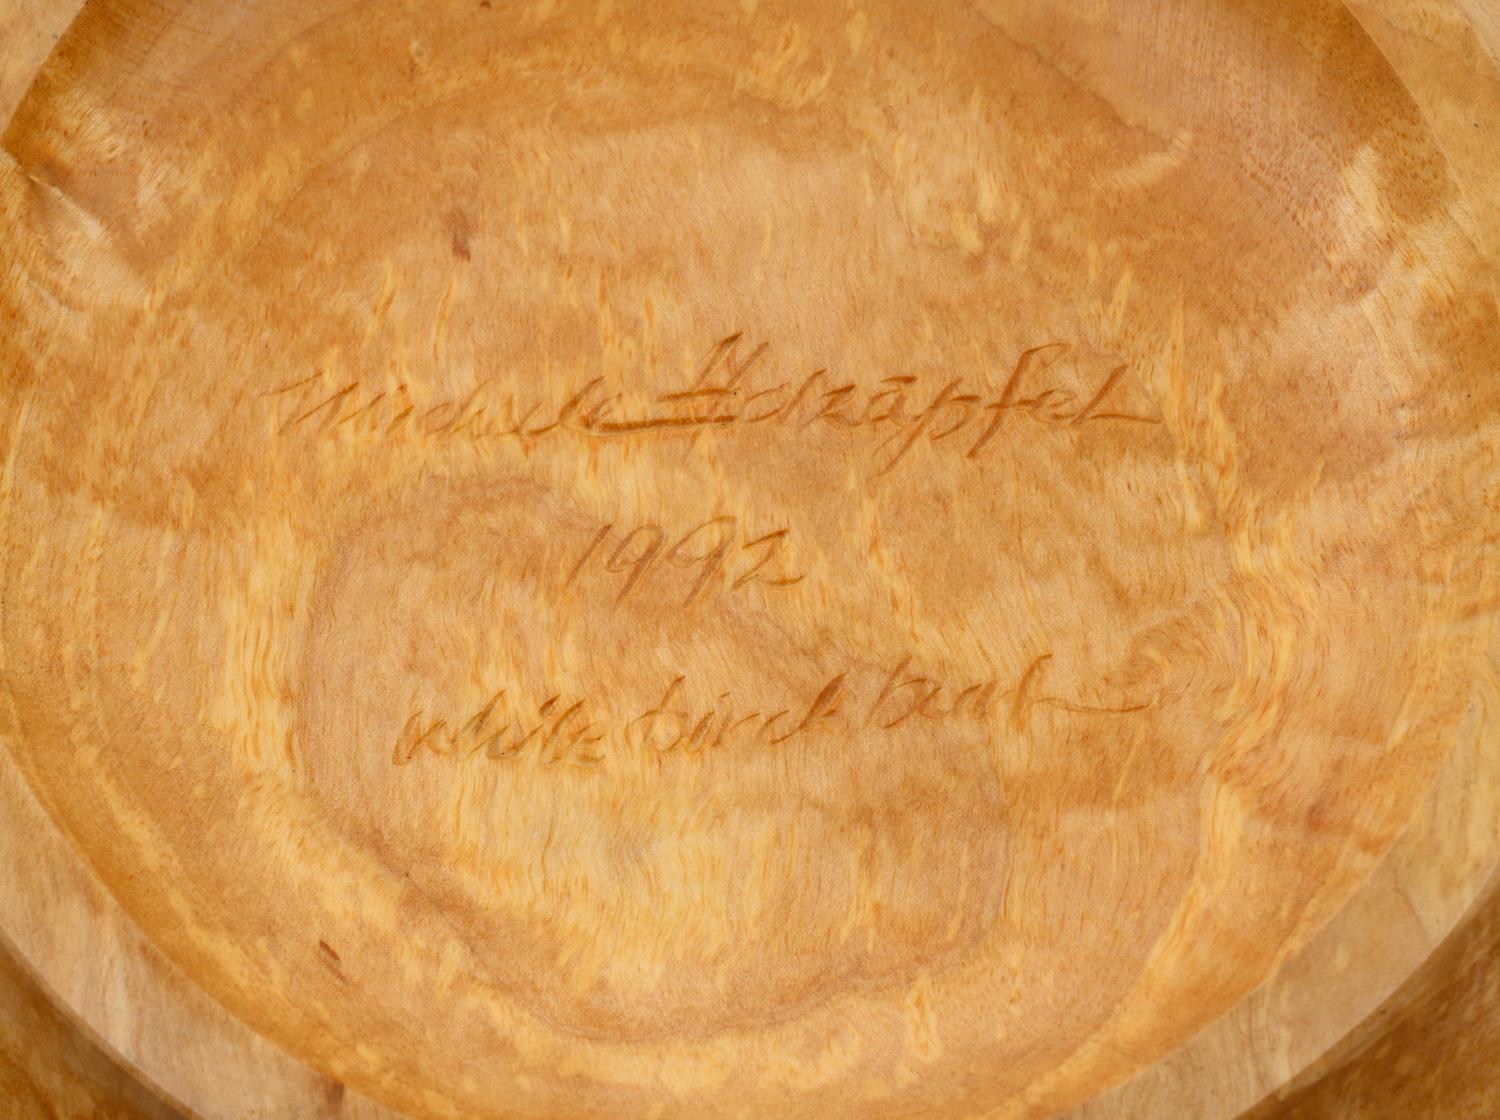 Michelle Holzäpfel
1992
white birch burl